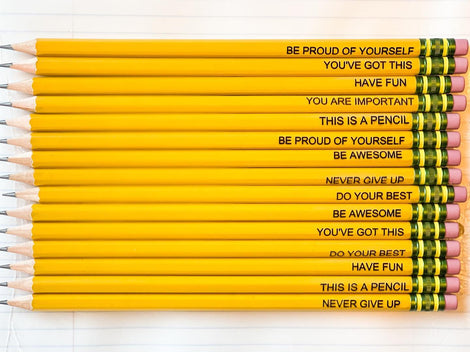 BE PROUD OF YOURSELF
YOU'VE GOT THIS
HAVE FUN
YOU ARE IMPORTANT
THIS IS A PENCIL
BE PROUD OF YOURSELF
BE AWESOME
NEVER GIVE UP
DO YOUR BEST
BE AWESOME
YOU'VE GOT THIS
DO YOUR BEST
HAVE FUN
THIS IS A PENCIL
NEVER GIVE UP